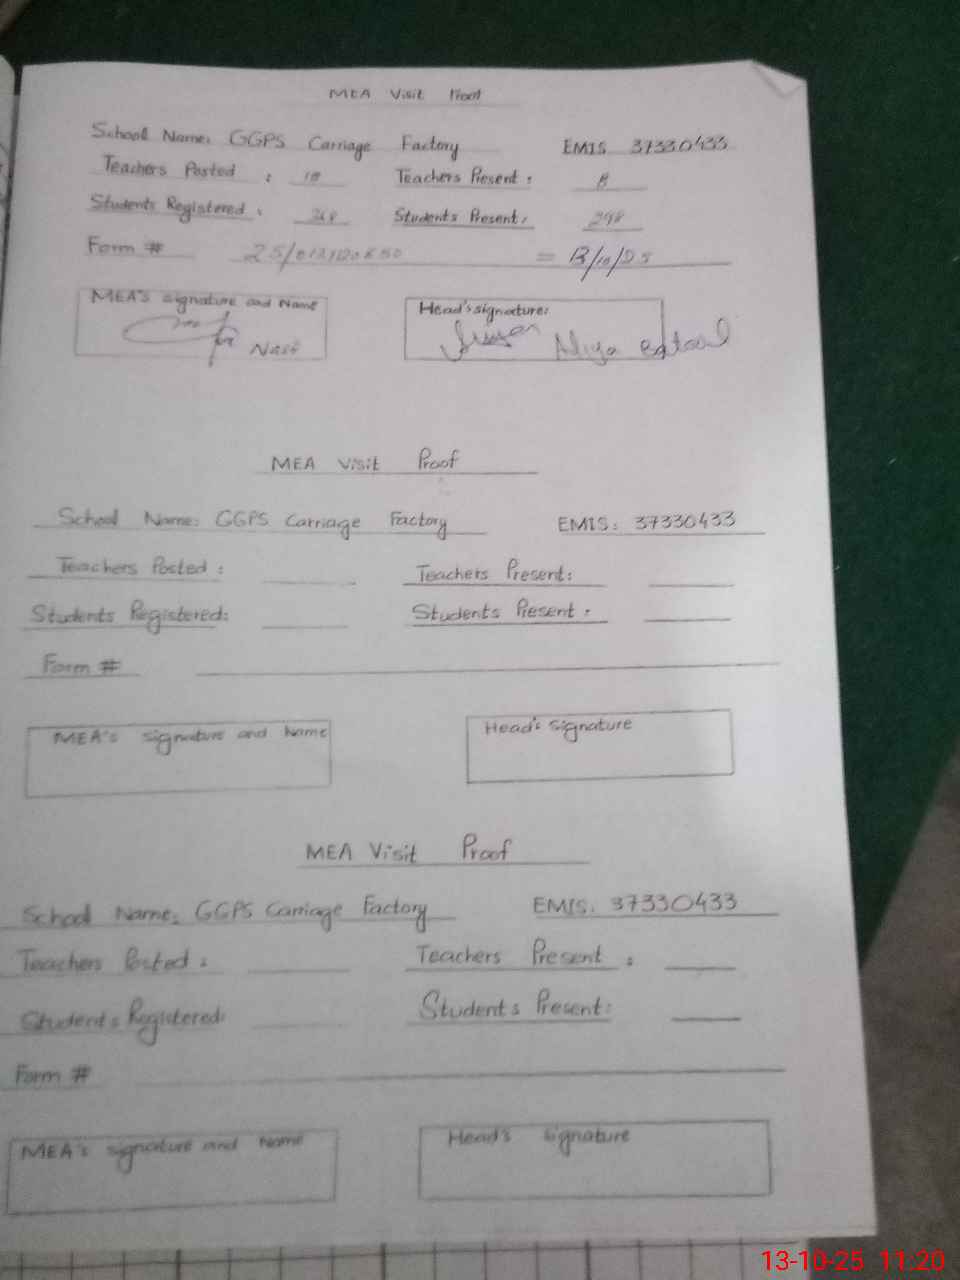 MEA Visit Proof
School Name: GGPS Carriage Factory EMIS 37330433
Teachers Posted : Teachers Present : 8
Students Registered : Students Present: 298
Form # = 13/10/25
MEA's signature and Name Head's signature:
Aliya
MEA Visit Proof
School Name: GGPS Carriage Factory EMIS: 37330433
Teachers Posted : Teachers Present:
Students Registered: Students Present :
Form #
MEA's signature and Name Head's signature
MEA Visit Proof
School Name: GGPS Carriage Factory EMIS. 37330433
Teachers Posted : Teachers Present :
Students Registered: Students Present:
Form #
MEA's signature and Name Head's signature
13-10-25 11:20